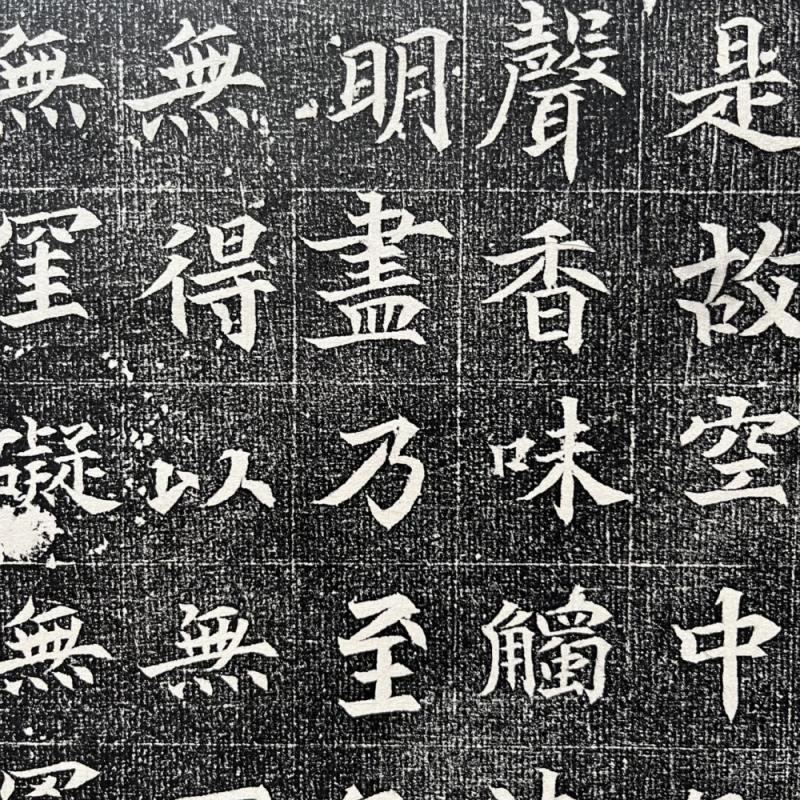 是故空中
聲香味觸
明盡乃至
無得以無
無罣礙無